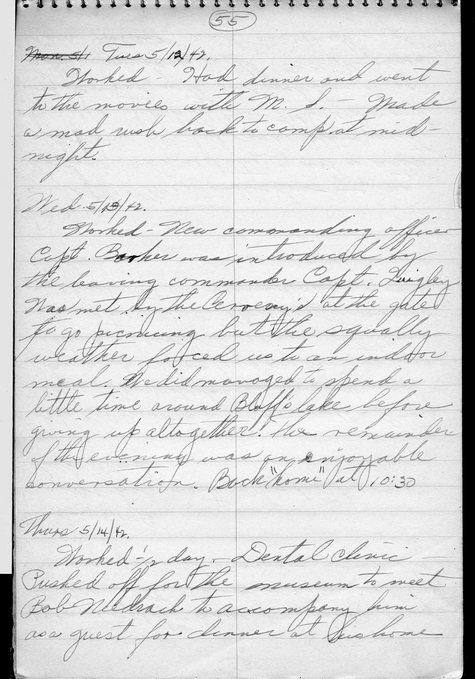 55
Mon. 5/1 Tues 5/12/42.
Worked - Had dinner and went
to the movies with M. S. - Made
a mad rush back to camp at mid-
night.
Wed 5/13/42.
Worked - New commanding officer
Capt. Barker was introduced by
the leaving commander Capt. Quigley
Was met by the at the gate
to go picnicing but the squally
weather forced us to an indoor
meal. We did managed to spend a
little time around Bluff's lake before
giving up altogether. The remainder
of the evening was an enjoyable
conversation. Back "home" at 10:30
Thurs 5/14/42.
Worked ½ day. Dental clinic
Pushed off for the museum to meet
Bob to accompany him
as a guest for dinner at his home